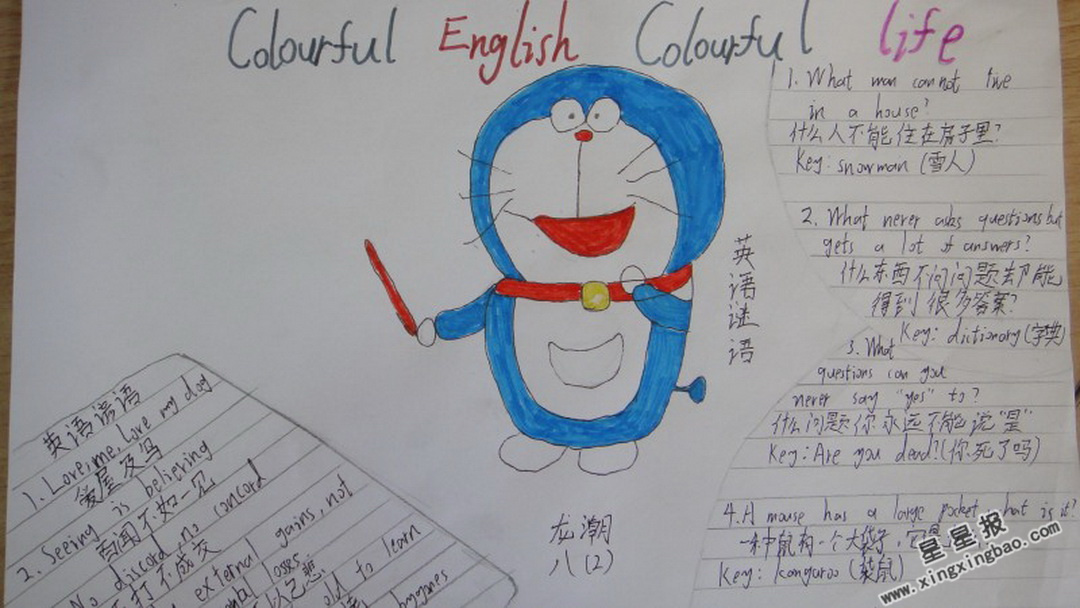 Colourful English Colourful life
1. What man cannot live
in a house?
什么人不能住在房子里?
Key: snowman (雪人)
2. What never asks questions but
gets a lot of answers?
什么东西不问问题却能
得到很多答案?
Key: dictionary (字典)
3. What
questions can you
never say "yes" to?
什么问题你永远不能说"是"
Key: Are you dead? (你死了吗)
4. A mouse has a large pocket, what is it?
一种鼠有一个大袋子,它是
Key: kangaroo (袋鼠)
英语谜语
英语谚语
1. Love, me, Love my dog
爱屋及乌
2. Seeing is believing
百闻不如一见
No discord, no concord
打不成交
external gains, not
losses
以己悲
old to learn
bygones
龙潮
八(2)
星星报
www.xingxingbao.com